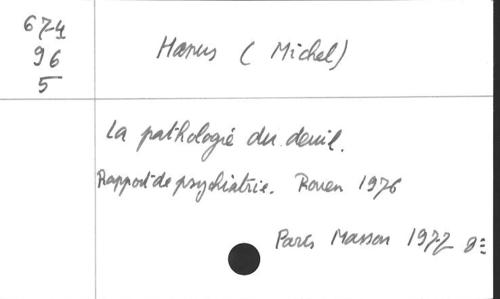 674
96
5
Hanus ( Michel)
La pathologie du deuil.
Rapport de psychiatrie. Rouen 1976
Paris Masson 1977 8=